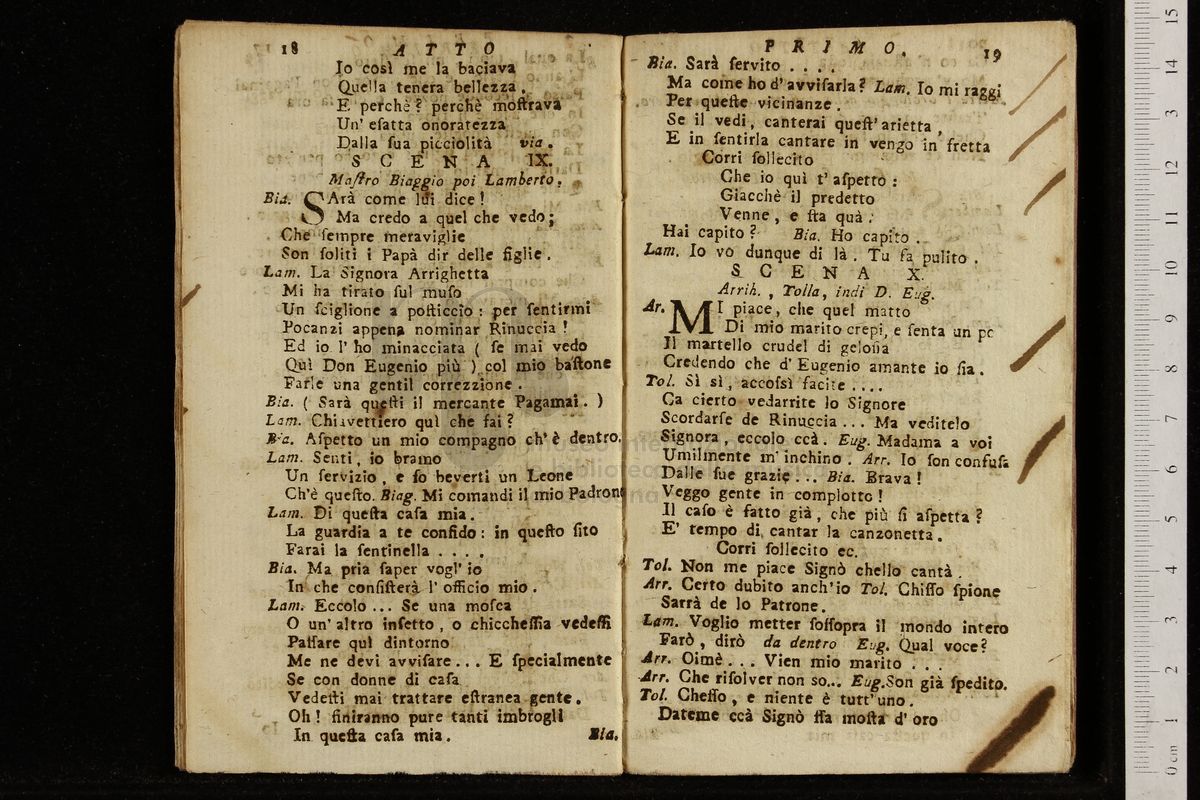 18 ATTO
Io così me la baciava
Quella tenera bellezza.
E perchè? perchè moſtrava
Un' eſatta onoratezza
Dalla ſua picciolità via.
SCENA IX.
Maſtro Biaggio poi Lamberto.
Bia. SArà come lui dice!
Ma credo a quel che vedo;
Che ſempre meraviglie
Son ſoliti i Papà dir delle figlie.
Lam. La Signora Arrighetta
Mi ha tirato ſul muſo
Un ſciglione a poſticcio: per ſentirmi
Pocanzi appena nominar Rinuccia!
Ed io l' ho minacciata ( ſe mai vedo
Quì Don Eugenio più ) col mio baſtone
Farle una gentil correzzione.
Bia. ( Sarà queſti il mercante Pagamai. )
Lam. Chiavettiero quì che fai?
Bia. Aſpetto un mio compagno ch' è dentro.
Lam. Senti, io bramo
Un ſervizio, e ſo beverti un Leone
Ch'è queſto. Biag. Mi comandi il mio Padron
Lam. Di queſta caſa mia.
La guardia a te confido: in queſto ſito
Farai la ſentinella ....
Bia. Ma pria ſaper vogl' io
In che conſiſterà l' officio mio.
Lam. Eccolo ... Se una moſca
O un' altro inſetto, o chiccheſſia vedeſſi
Paſſare quì dintorno
Me ne devi avviſare ... E ſpecialmente
Se con donne di caſa
Vedeſti mai trattare eſtranea gente.
Oh! finiranno pure tanti imbrogli
In queſta caſa mia.
Bia.
PRIMO. 19
Bia. Sarà ſervito ....
Ma come ho d' avviſarla? Lam. Io mi raggi
Per queſte vicinanze.
Se il vedi, canterai queſt' arietta,
E in ſentirla cantare in vengo in fretta
Corri ſollecito
Che io quì t' aſpetto:
Giacchè il predetto
Venne, e ſta quà:
Hai capito? Bia. Ho capito.
Lam. Io vo dunque di là. Tu fa pulito.
SCENA X.
Arrih., Tolla, indi D. Eug.
Ar. MI piace, che quel matto
Di mio marito crepi, e ſenta un pc
Il martello crudel di geloſia
Credendo che d' Eugenio amante io ſia.
Tol. Sì sì, accoſsì facite ....
Ca cierto vedarrite lo Signore
Scordarſe de Rinuccia ... Ma veditelo
Signora, eccolo ccà. Eug. Madama a voi
Umilmente m' inchino. Arr. Io ſon confuſa
Dalle ſue grazie ... Bia. Brava!
Veggo gente in complotto!
Il caſo è fatto già, che più ſi aſpetta?
E' tempo di cantar la canzonetta.
Corri ſollecito ec.
Tol. Non me piace Signò chello cantà.
Arr. Certo dubito anch'io Tol. Chiſſo ſpione
Sarrà de lo Patrone.
Lam. Voglio metter ſoſſopra il mondo intero
Farò, dirò da dentro Eug. Qual voce?
Arr. Oimè... Vien mio marito ...
Arr. Che riſolver non so... Eug. Son già ſpedito.
Tol. Cheſſo, e niente è tutt'uno.
Dateme ccà Signò ſſa moſta d' oro